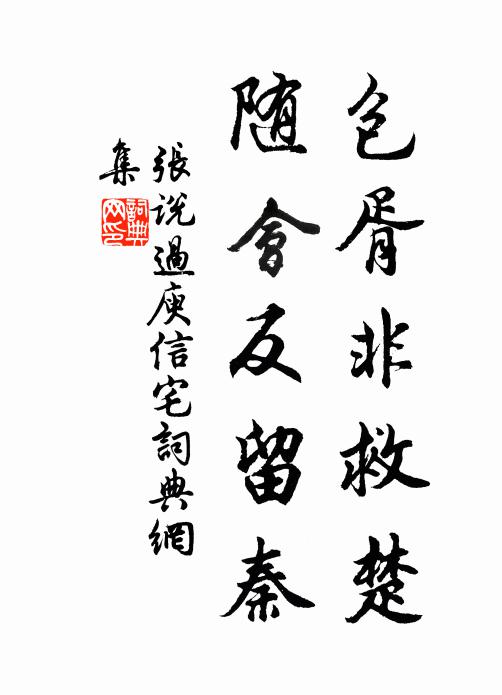 包胥非救楚
随會反留秦
張說過庾信宅詞典網
集
詞典
网印